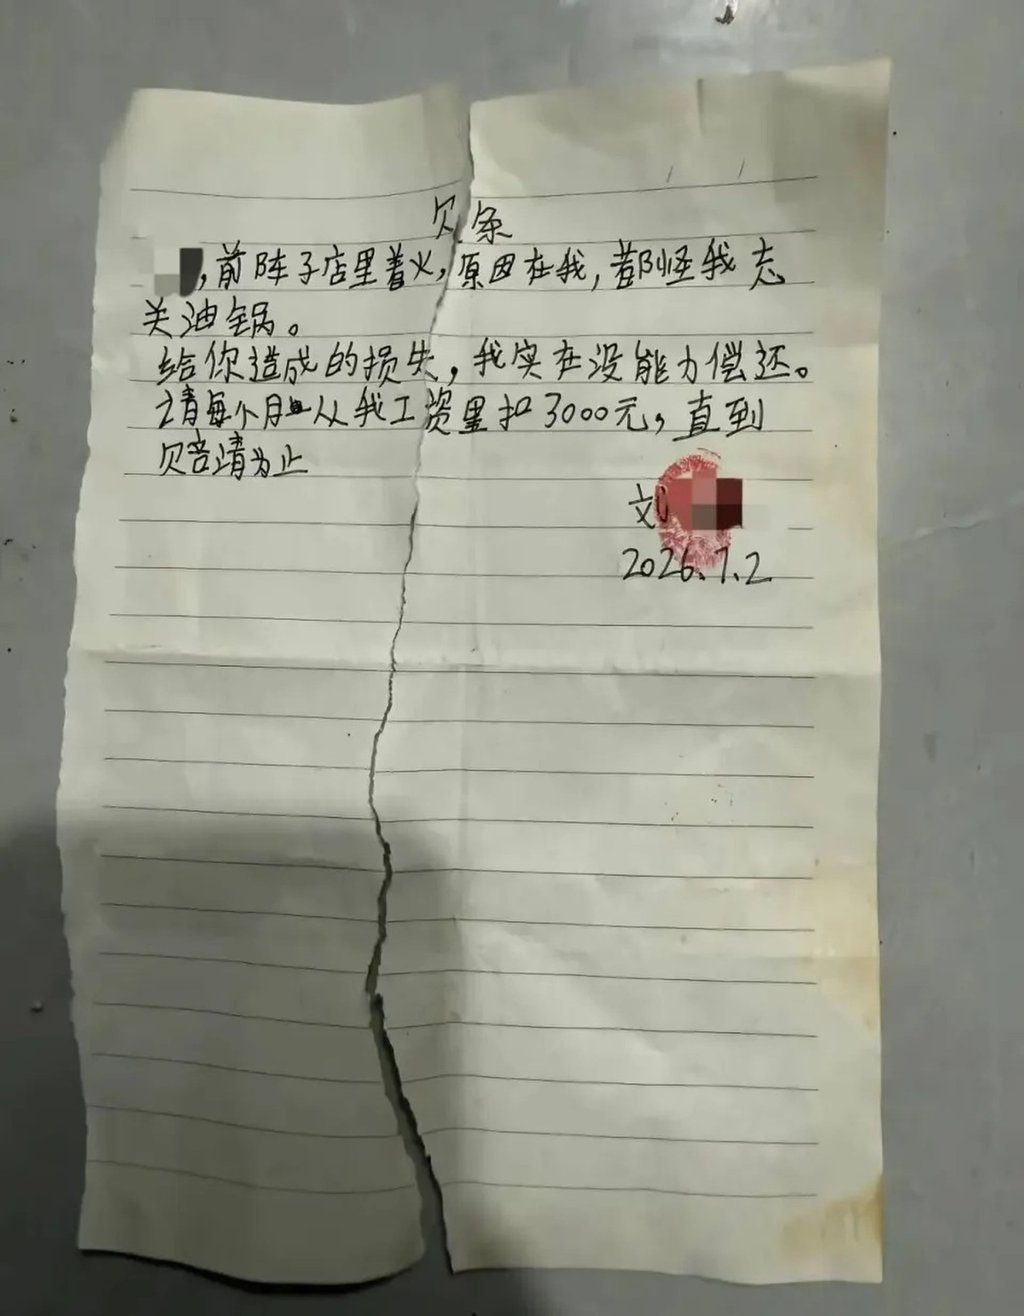 欠条
,前阵子店里着火,原因在我,都怪我忘
关油锅。
给你造成的损失,我实在没能力偿还。
请每个月从我工资里扣3000元,直到
赔清为止
刘
2026.1.2